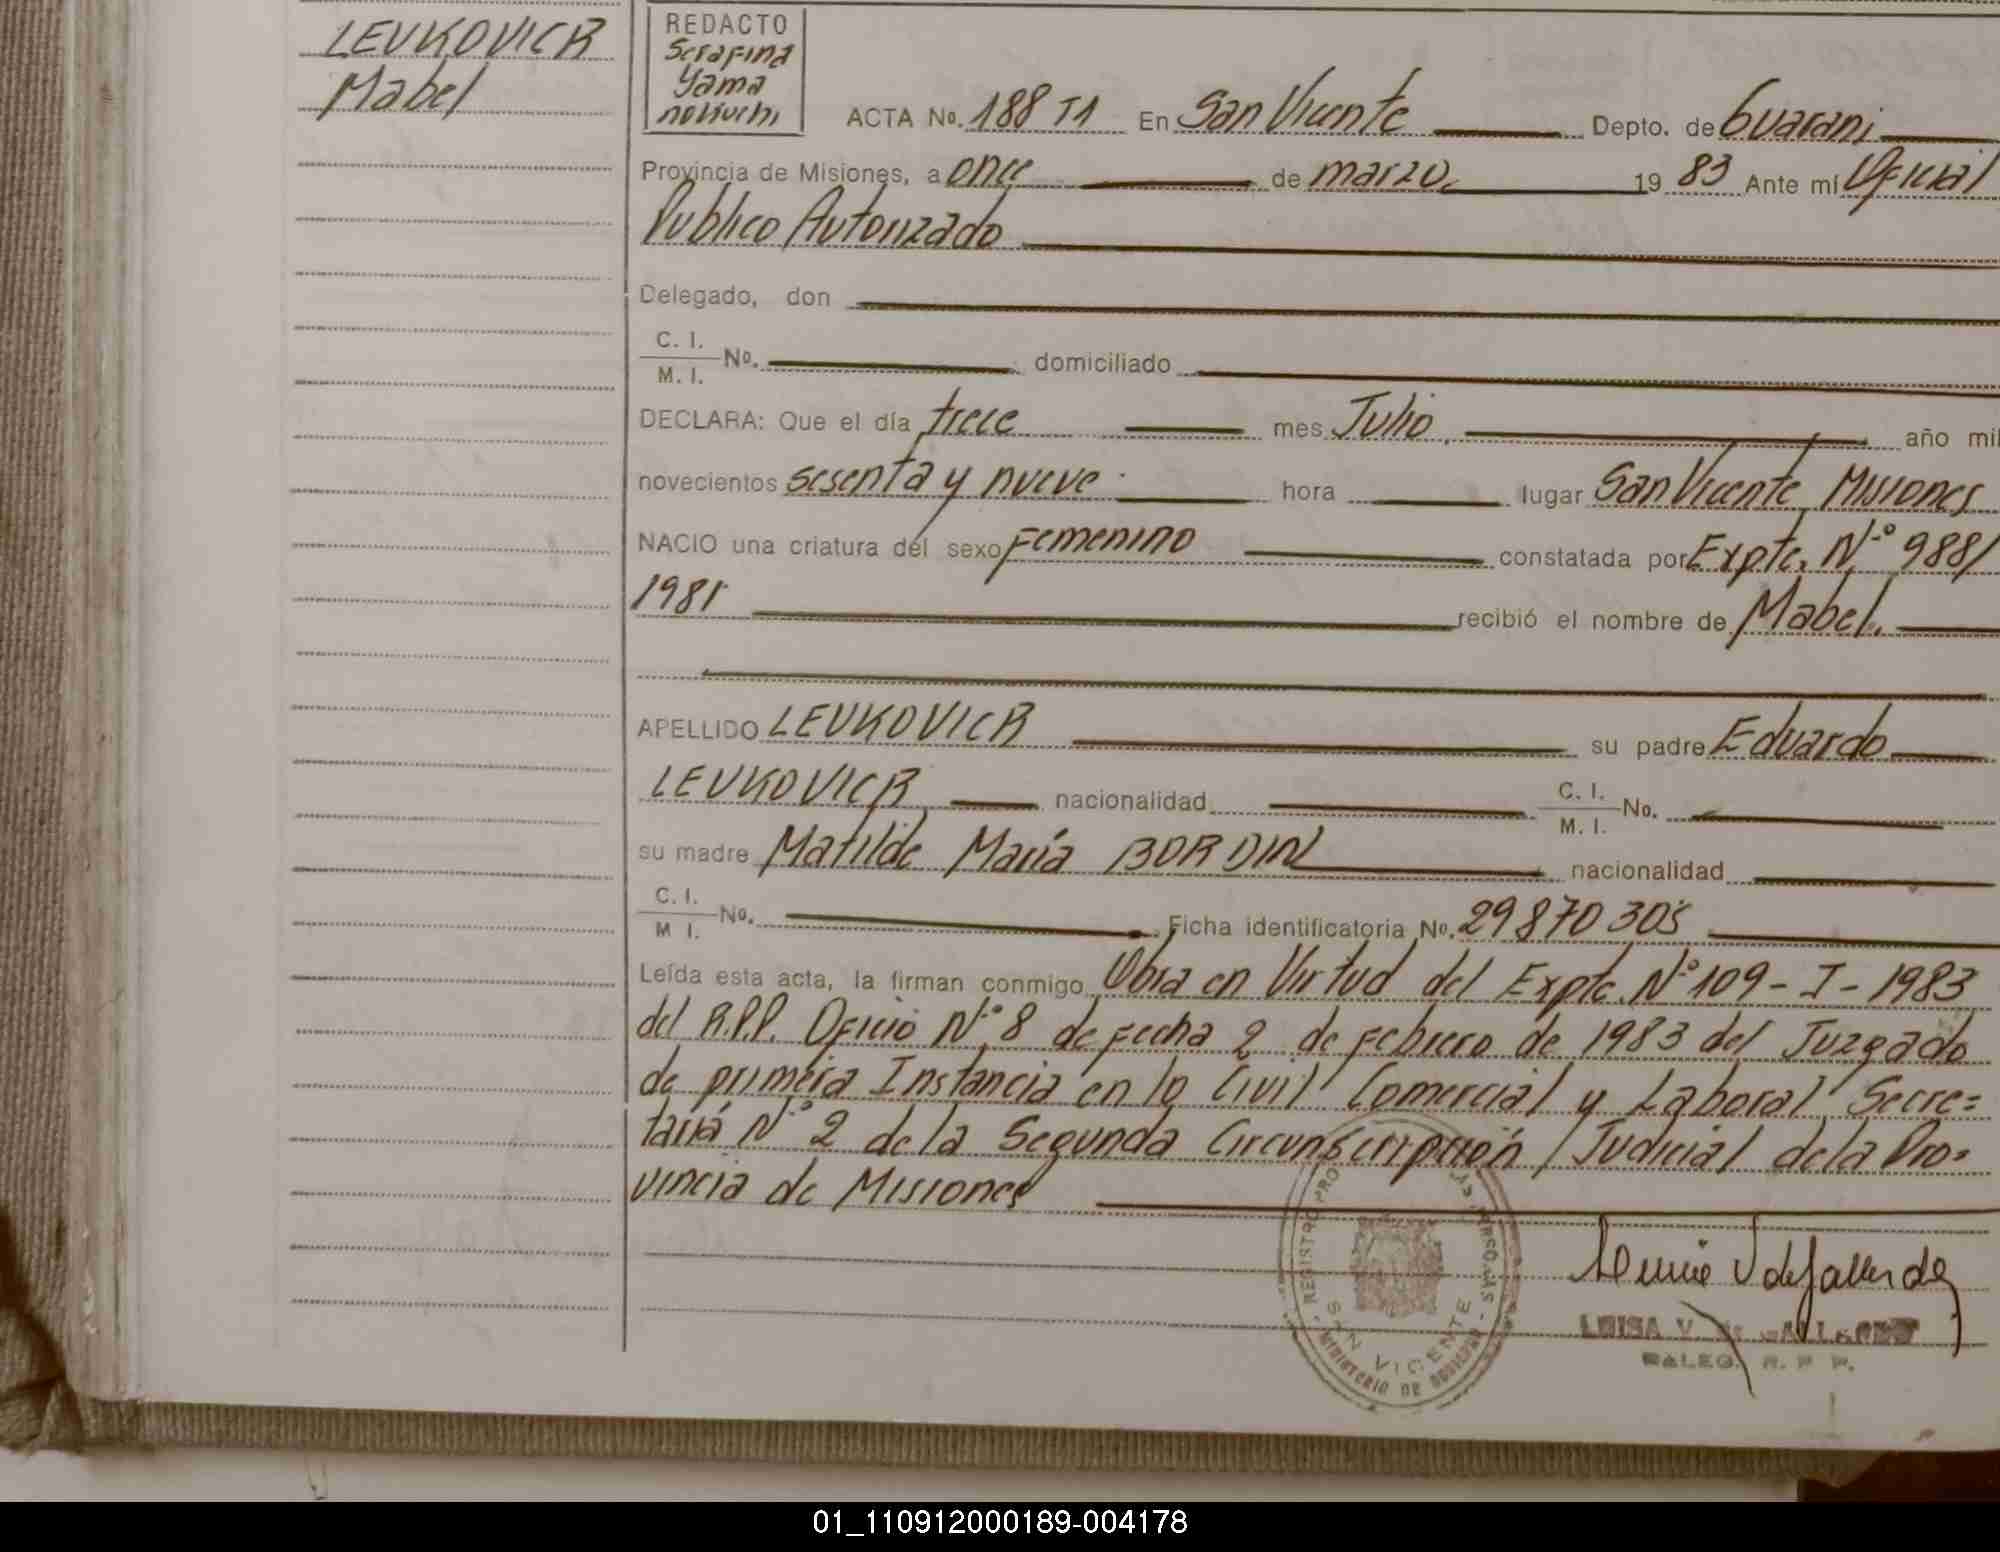 LEVKOVICR
Mabel
REDACTO
Serafina
Yama
ACTA No. 188 T1 En San Vicente Depto. de Guarani
Provincia de Misiones, a once de marzo, 19 83 Ante mí Oficial
Publico Autorizado
Delegado, don
C. I.
M. I. No. domiciliado
DECLARA: Que el día trece mes Julio, año mil
novecientos sesenta y nueve hora lugar San Vicente, Misiones
NACIO una criatura del sexo Femenino constatada por Expte. Nº 988/
1981 recibió el nombre de Mabel.
APELLIDO LEVKOVICR su padre Eduardo
LEVKOVICR nacionalidad C. I.
M. I. No.
su madre Matilde María BORDIN nacionalidad
C. I.
M I. No. Ficha identificatoria No. 29870305
Leída esta acta, la firman conmigo Obra en Virtud del Expte. Nº 109-I-1983
del R.P.P. Oficio Nº 8 de Fecha 2 de Febrero de 1983 del Juzgado
de primera Instancia en lo Civil Comercial y Laboral Secre=
taría Nº 2 de la Segunda Circunscripción Judicial de la Pro=
vincia de Misiones
REGISTRO PRO
SAN VICENTE
MINISTERIO DE
LUISA V.
R. P. P.
01_110912000189-004178